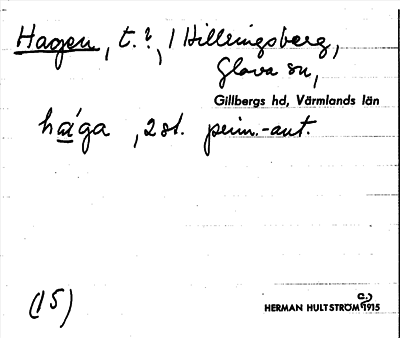 Hagen, t.?, / Hillringsberg,
Glava sn,
Gillbergs hd, Värmlands län
há̱ga, 2 st. prim.-ant.
(15)
c.)
HERMAN HULTSTRÖM 1915